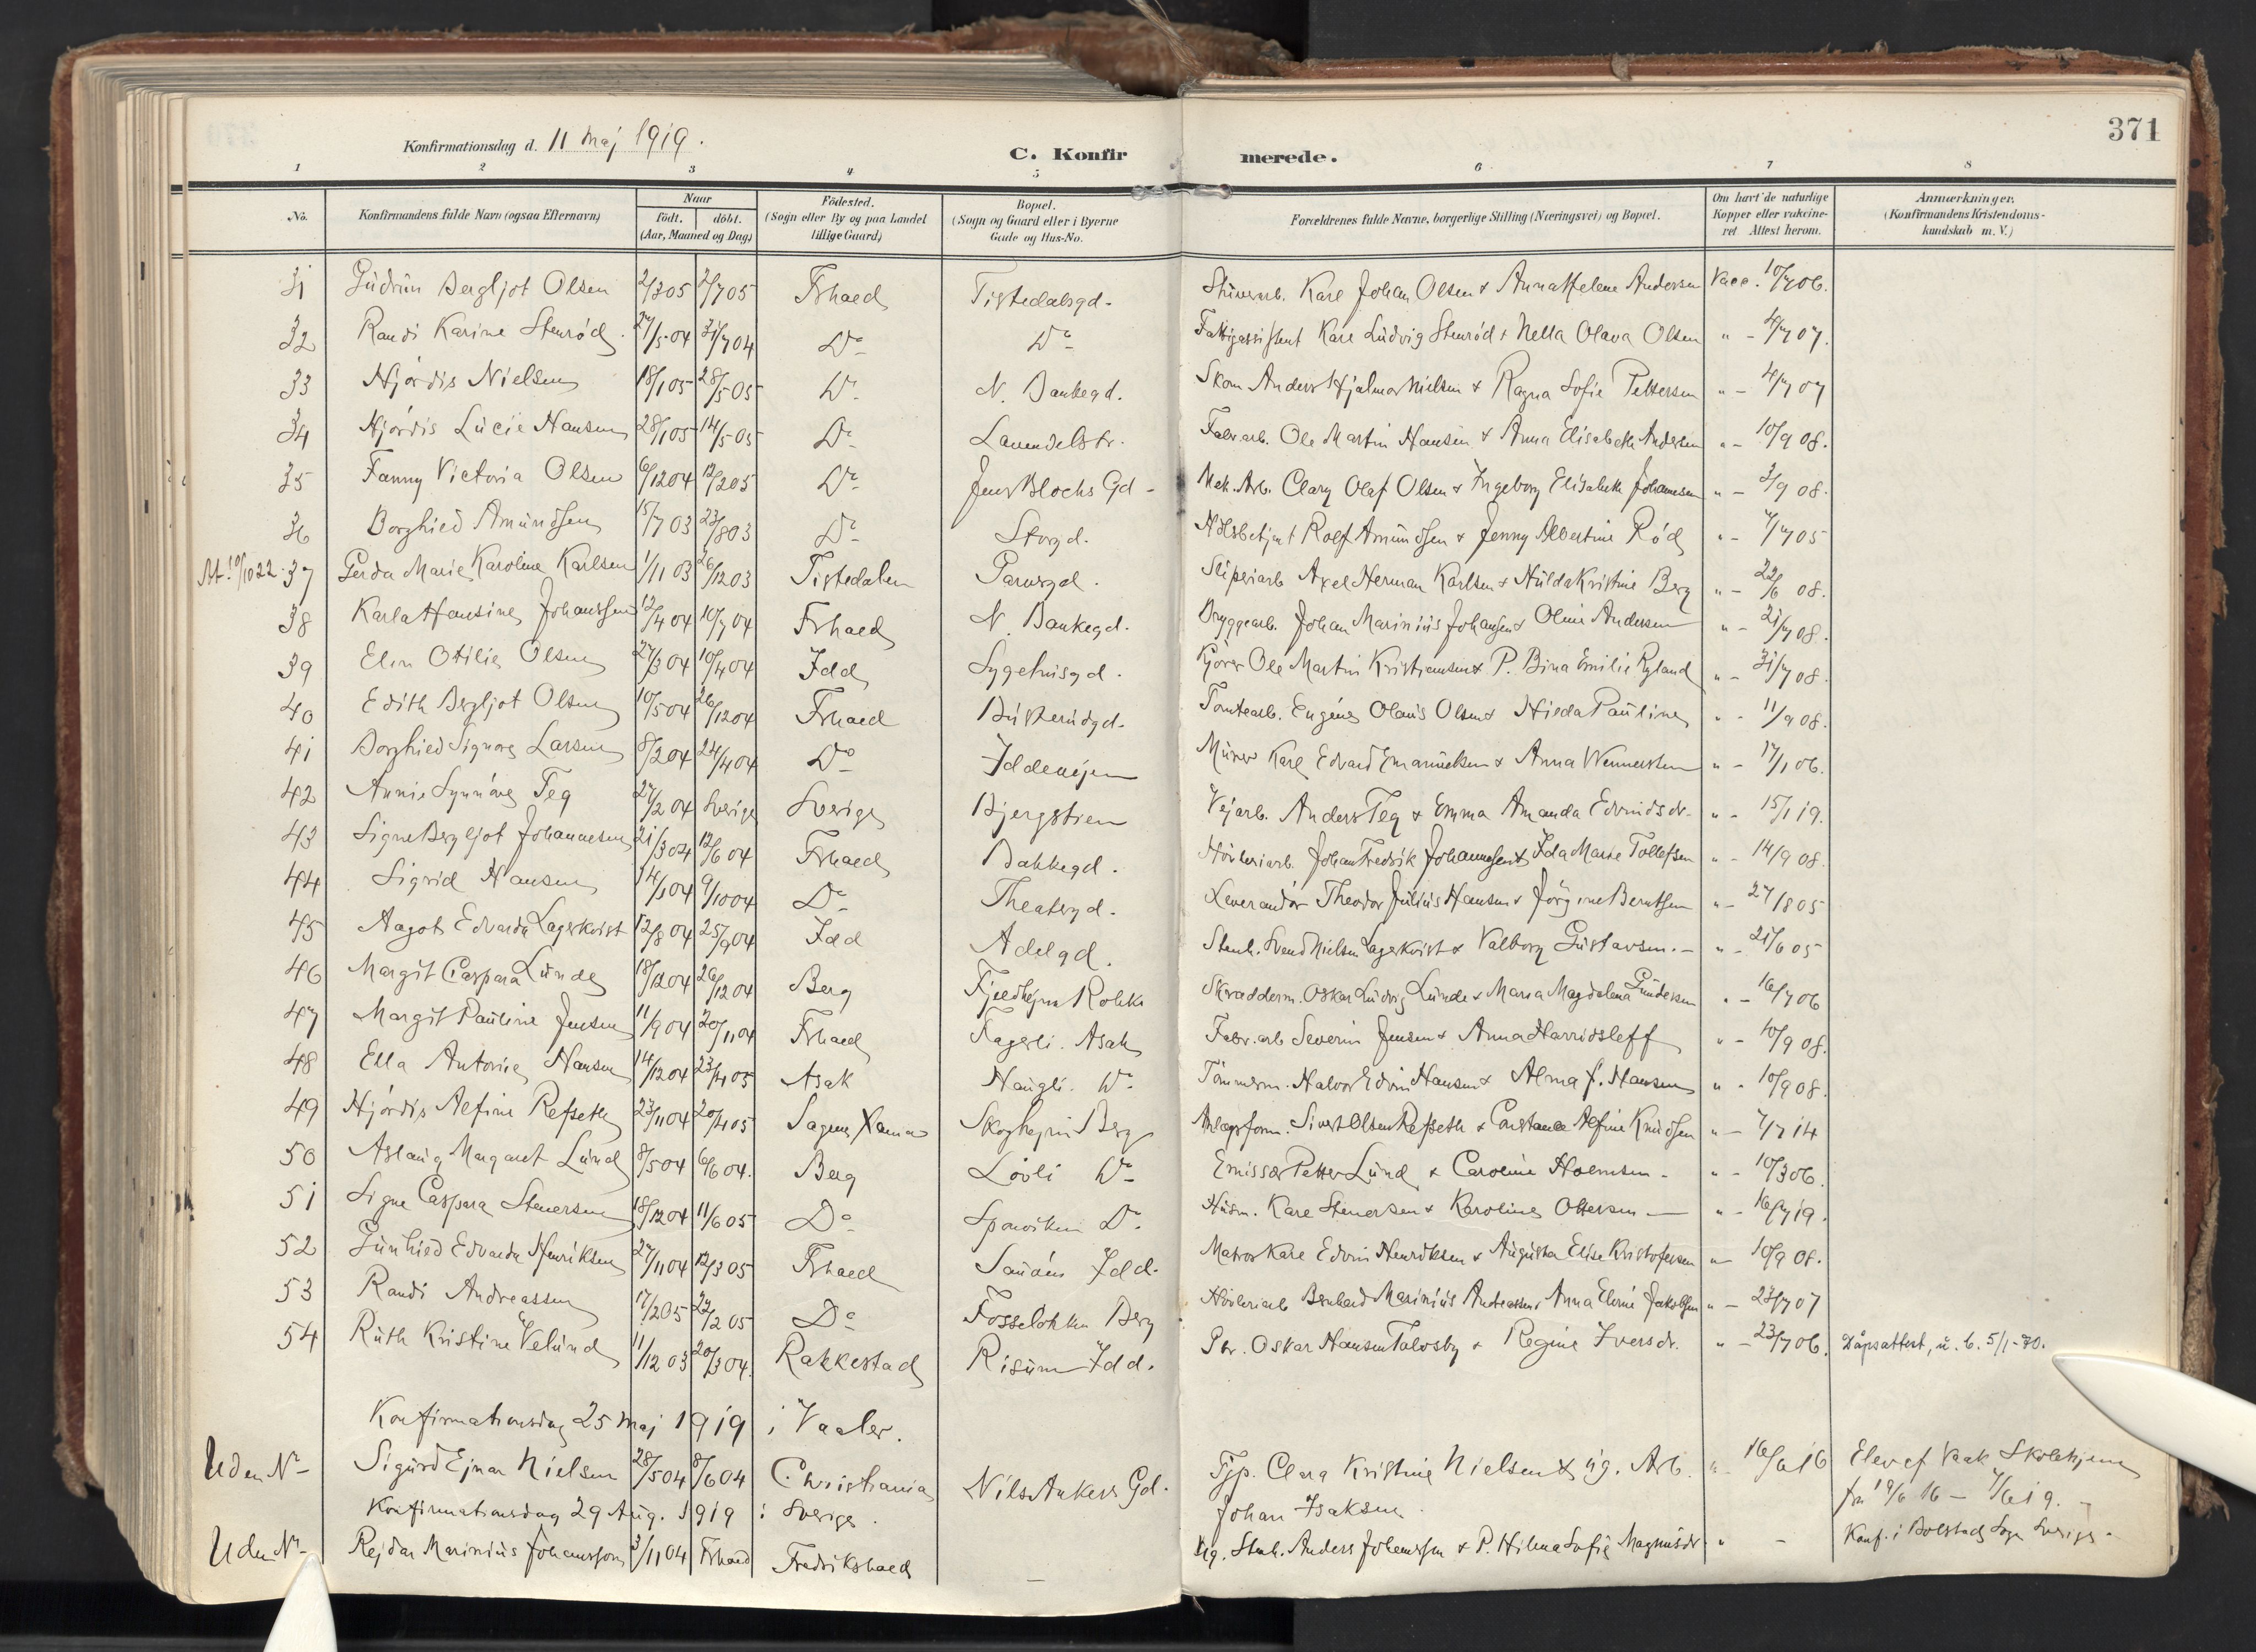 371
Konfirmationsdag d. 11 Maj 1919.
C. Konfirmerede.
1 2 3 4 5 6 7 8
No. Konfirmandens fulde Navn (ogsaa Efternavn) Naar født. døbt. (Aar, Maaned og Dag) Födested. (Sogn eller By og paa Landet tillige Gaard) Bopæl. (Sogn og Gaard eller i Byerne Gade og Hus-No. Forældrenes fulde Navne, borgerlige Stilling (Næringsvei) og Bopæl. Om havt de naturlige Kopper eller vakcineret Attest herom. Anmærkninger. (Konfirmandens Kristendomskundskab m. V.)
31 Gudrun Bergljot Olsen 2/3 05 2/7 05 Frhald Tistedalsgd. Karl Johan Olsen & Anna Helene Andersen Vacc. 10/7 06.
32 Randi Karine Stenrød 27/5 04 31/7 04 Do Do Fattigassistent Karl Ludvig Stenrød & Nella Olava Olsen " - 4/7 07.
33 Hjørdis Nielsen 18/1 05 28/5 05 Do N. Bankegd. Skom. Anders Hjalmar Nielsen & Ragna Sofie Pettersen " - 4/7 07
34 Hjørdis Lucie Hansen 28/1 05 14/5 05 Do Lavendelstr. Fabr.arb. Ole Martin Hansen & Anna Elisabeth Andersen " - 10/9 08.
35 Fanny Victoria Olsen 6/12 04 12/2 05 Do Jens Blochs Gd - Mek. Arb. Clary Olaf Olsen & Ingeborg Elisabeth Johannesen " - 3/9 08.
36 Borghild Amundsen 15/7 03 23/8 03 Do Storgd. Rolf Amundsen & Jenny Albertine Rød " - 7/7 05
At. 10/10 22. 37 Gerda Marie Karoline Karlsen 1/11 03 26/12 03 Tistedalen Sliperiarb Axel Herman Karlsen & Hulda Kristine Berg " - 22/6 08.
38 Karla Hansine Johanssen 12/4 04 10/7 04 Frhald N. Bankegd. Bryggearb. Johan Marinius Johansen & Oline Andersen " - 21/7 08.
39 Elin Otilie Olsen 27/3 04 10/4 04 Idd Sygehusgd. Kjører Ole Martin Kristiansen & P. Bina Emilie Ryland " - 31/7 08.
40 Edith Bergljot Olsen 10/5 04 26/12 04 Frhald Buskerudgd. Tomtearb. Eugen Olaus Olsen & Hilda Pauline " - 11/9 08.
41 Borghild Signora Larsen 8/2 04 24/4 04 Do Iddeveien Murer Karl Edvard Emanuelsen & Anna Wennersten " - 17/1 06.
42 Annie Synnøve Teg 27/2 04 Sverige Sverige Bjergstien Vejarb. Anders Teg & Emma Amanda " - 15/1 19.
43 Signe Bergljot Johannesen 21/3 04 12/6 04 Frhald Bakkegd. Høvleriarb. Johan Fredrik Johannesen & Ida Marie Tollefsen " - 14/9 08.
44 Sigrid Hansen 14/1 04 9/10 04 Do Theatergd. Leverandør Theodor Julius Hansen & Jørgine Berntsen " - 27/8 05
45 Aagot Edvarda Lagerkvist 12/8 04 25/9 04 Idd Adelgd. Stenh. Svend Nielsen Lagerkvist & Valborg Gustavsen. - " - 21/6 05
46 Margit Caspara Lunde 18/12 04 26/12 04 Berg Fjeldhejm Rokke Skrædderm. Oskar Ludvig Lunde & Maria Magdalena Gundersen " - 16/7 06
47 Margit Pauline Jensen 11/9 04 20/11 04 Frhald Fagerli. Asak Fabr. arb Severin Jensen & Anna Harridsleff " - 10/9 08.
48 Ella Antonie Hansen 14/12 04 23/4 05 Asak Haugli. Do Tømmerm. Halvor Edvin Hansen & Alma J. Hansen " - 10/9 08.
49 Hjørdis Alfine Refseth 23/11 04 20/4 05 Skoghejm Berg Anlægsform. Sivert Olsen Refseth & Constance Alfine Knudsen " - 7/7 14
50 Aslaug Margaret Lund 8/5 04 6/6 04. Berg Løvli Do Emissær Petter Lund & Caroline Holmsen - " - 10/3 06.
51 Signe Caspara Stenersen 18/12 04 11/6 05 Do Sponviken Do Husm. Karl Stenersen & Karoline Ottersen - " - 16/7 19.
52 Gunhild Edvarda Henriksen 27/11 04 12/3 05 Frhald Sauøen Idd. Matros Karl Edvin Henriksen & Augusta Elise Kristofersen " - 10/9 08.
53 Randi Andreassen 17/2 05 22/2 05 Do Fosseløkka Berg Høvleriarb Bernhard Marinius Andreassen & Anna Elvine Jakobsen " - 23/7 07
54 Ruth Kristine Velund 11/12 03 20/3 04. Rakkestad Risum Idd. Oskar Hansen & Regine Iversdr. " - 23/7 06. Dåpsattest, u. b. 5/1-70.
Konfirmationsdag 25 Maj 1919 i Vaaler.
Uden No- Sigurd Ejnar Nielsen 28/5 04 8/6 04 Christiania Nils Ankers Gd. Tjp. Clara Kristine Nielsen & ug. Arb. Johan Isaksen " 16/6 16 Elev af Vaak Skolehjem fra 19/6 16 - 7/6 19. -
Konfirmationsdag 29 Aug. 1919 i Sverige.
Uden No- Rejdar Marinius Johanssen 3/11 04 Frhald Fredrikshald - Ug. Stenh. Anders Johanssen & P. Hilma Sofie Magnusdr " - Konf. i Bolstad Sogn Sverige.